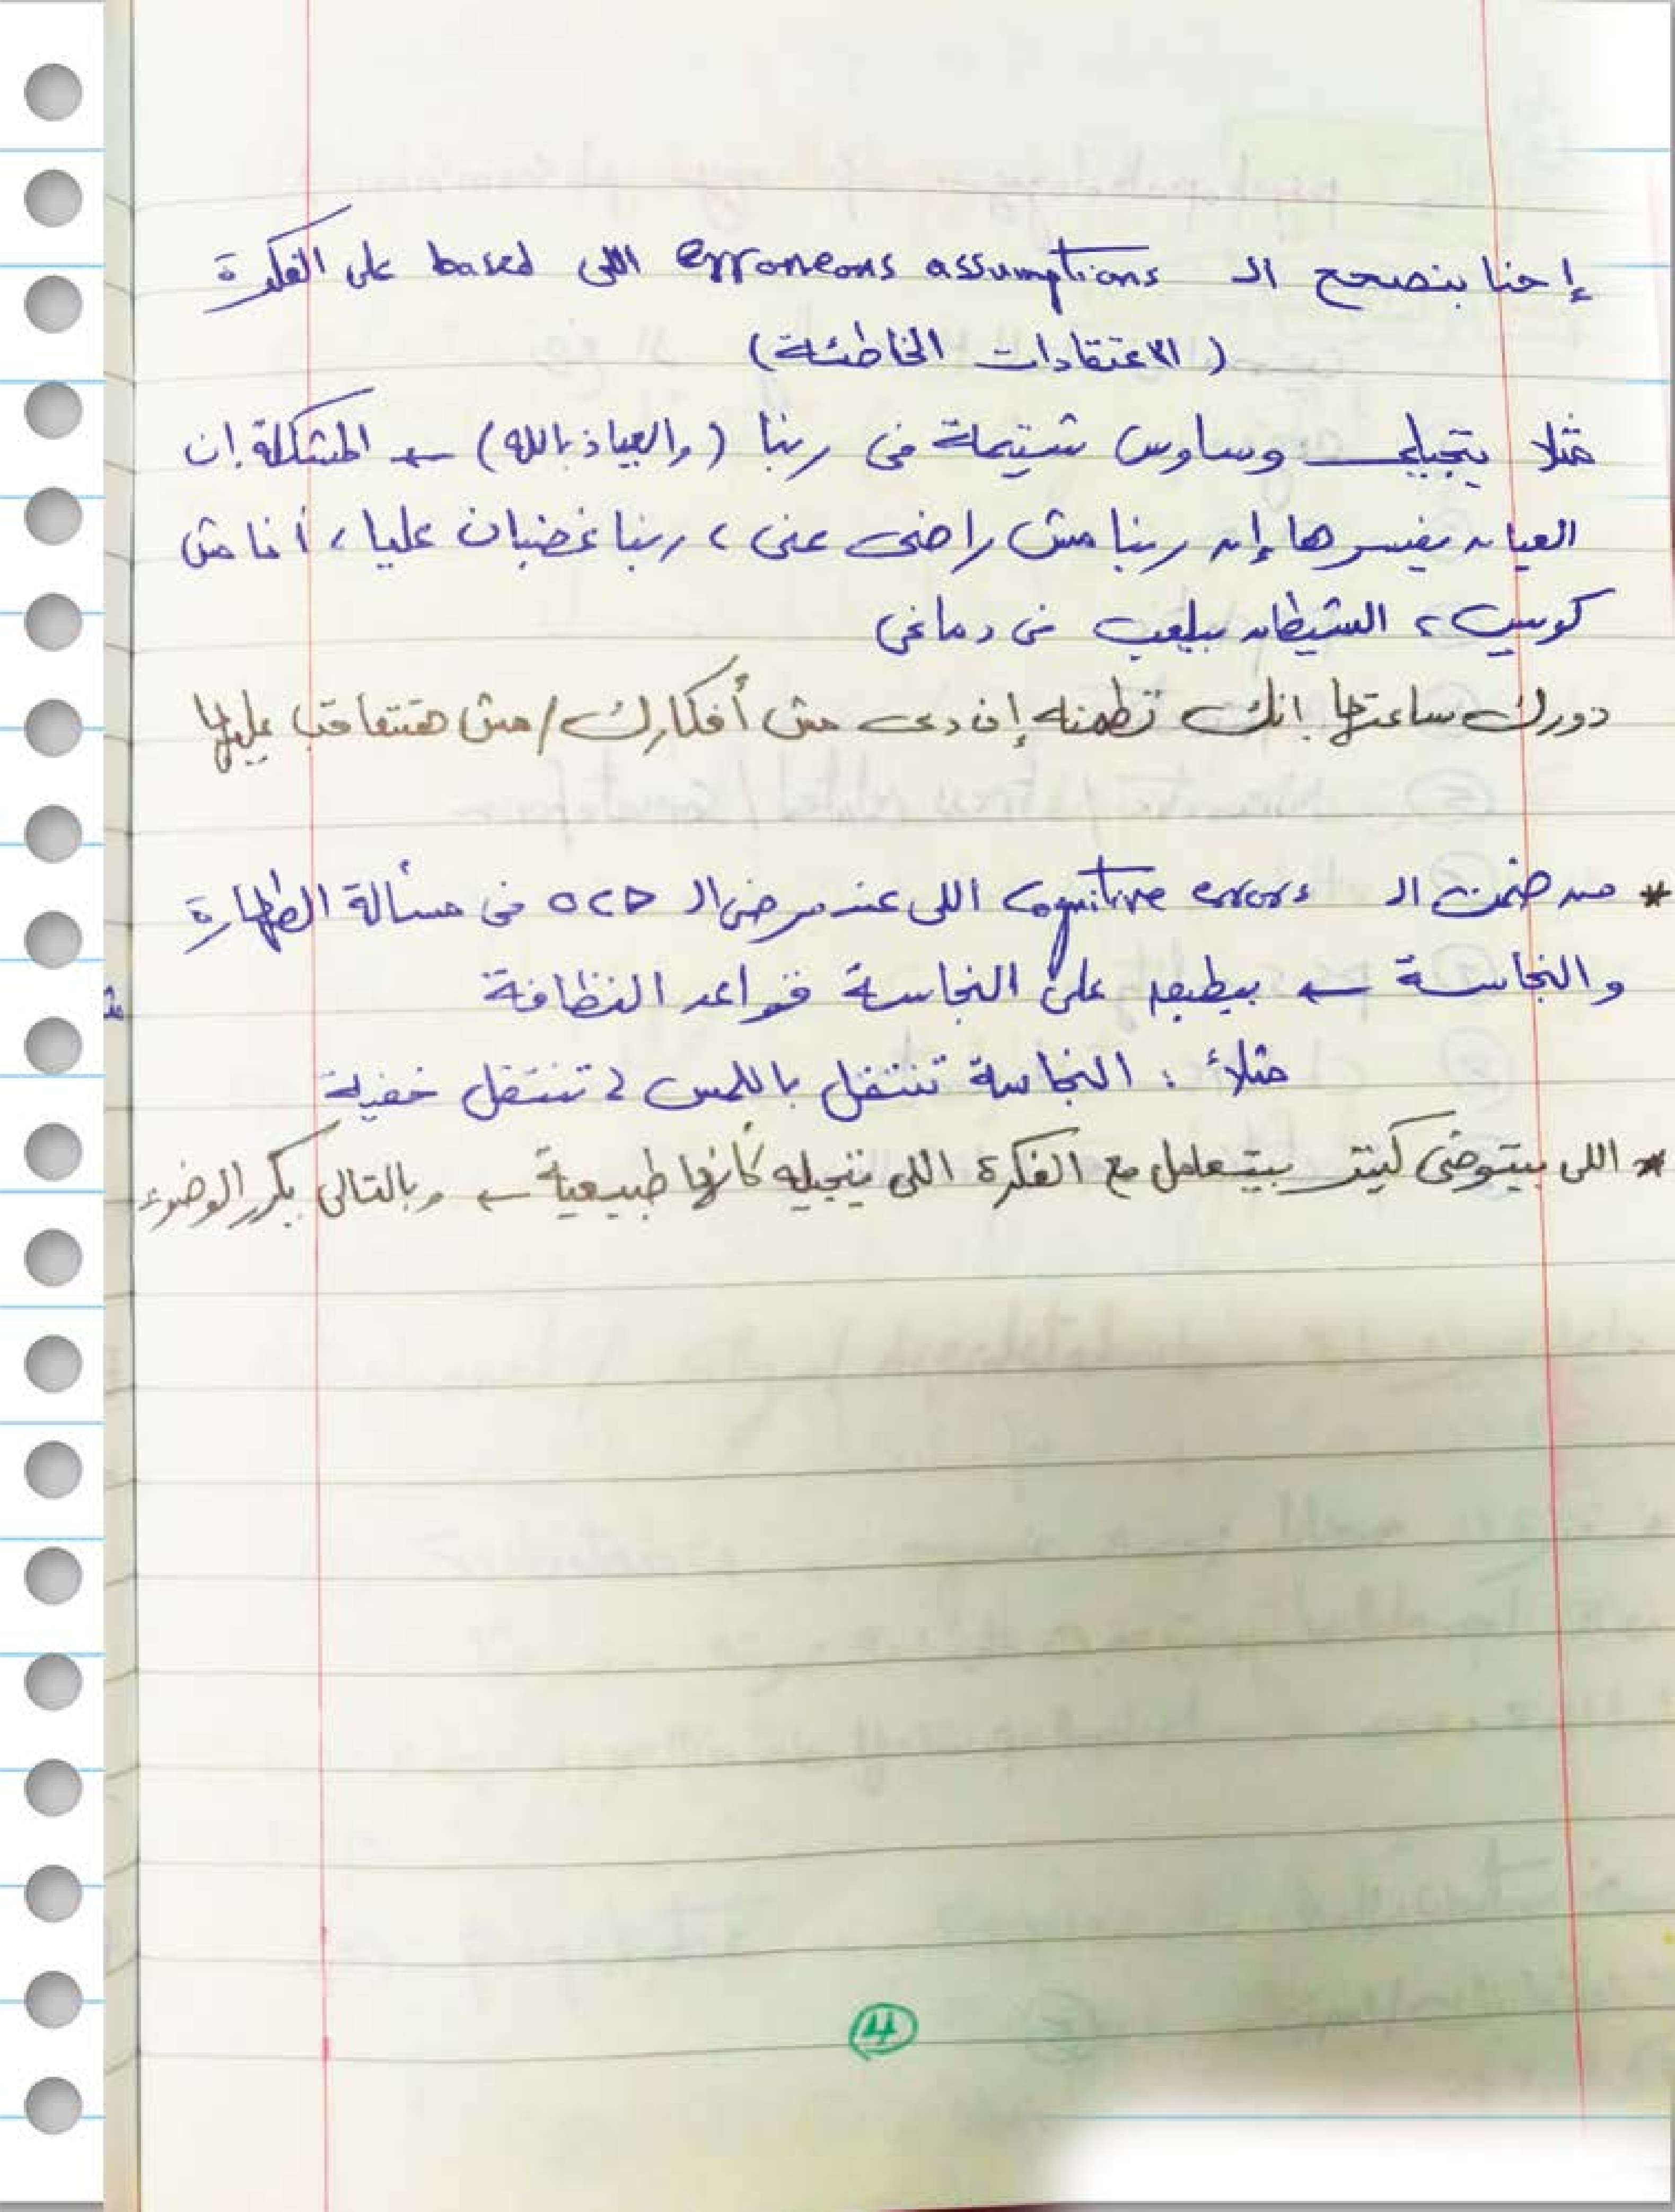 إحنا بنصحح الـ erroneous assumptions اللى based على الفكرة
(الاعتقادات الخاطئة)
مثلا بتجيلى وساوس شتيمة فى ربنا (والعياذ بالله) ← المشكلة إن
العيان بيفسرها إن ربنا مش راضى عنى، ربنا غضبان عليا، أنا مش
كويس، الشيطان بيلعب فى دماغى
دورك ساعتها إنك تطمنه إن دى مش أفكارك / مش هتتعاقب عليها
* من ضمن الـ Cognitive errors اللى عند مرضى الـ OCD فى مسألة الطهارة
والنجاسة ← بيطبق على النجاسة قواعد النظافة
مثلاً : النجاسة تنتقل باللمس، تنتقل خفية
* اللى بيتوضى كتير بيتعامل مع الفكرة اللى بتجيله كأنها طبيعية ← وبالتالى يكرر الوضوء
4